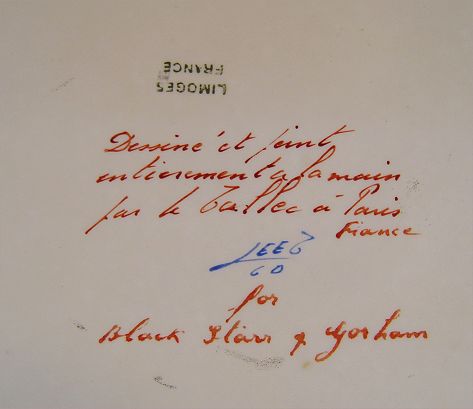 LIMOGES
FRANCE
Dessiné et peint
entierement a la main
par le Tallec à Paris
France
for
Black Starr & Gorham